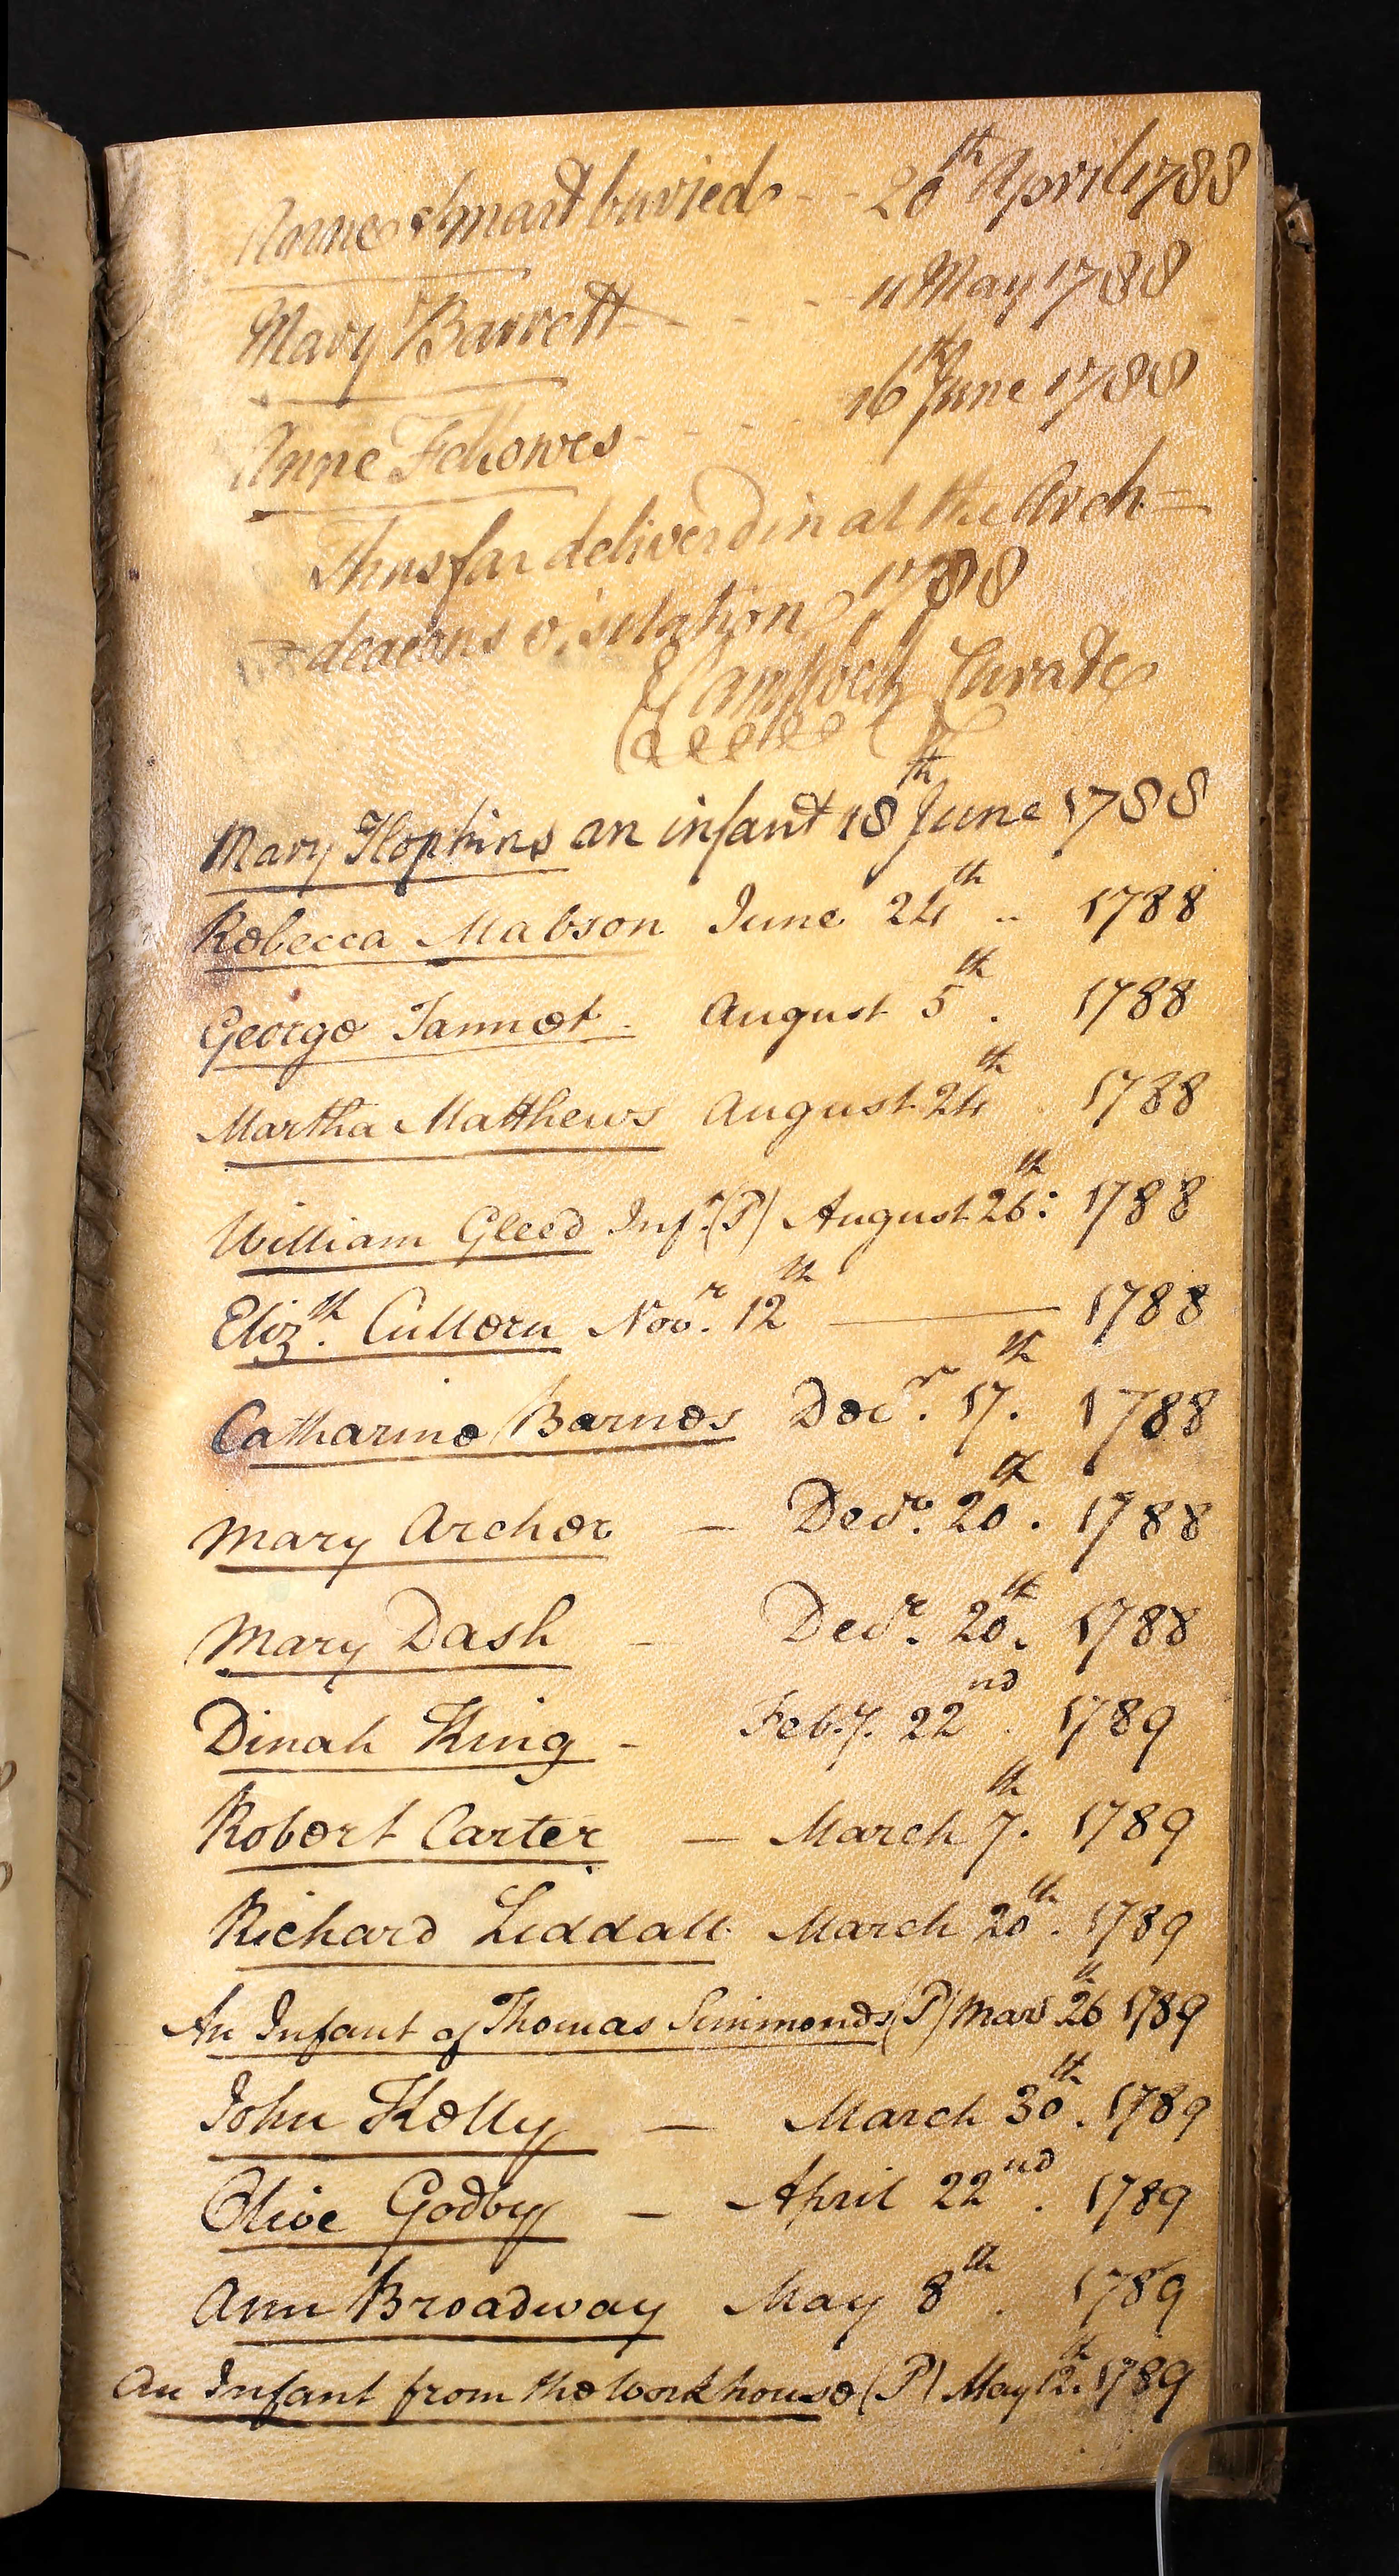 Anne Smart buried - - 20th April 1788
Mary Barrett - - - 11 May 1788
Anne Fellowes - - - - 16th June 1788
Thus far deliverd in at the Arch=
=deacons visitation 1788
Campbell Curate
Mary Hopkins an infant 18th June 1788
Rebecca Mabson June 24th .. 1788
George Jannet August 5th . 1788
Martha Matthews August 24th 1788
William Gleed Inft. (P) August 26th: 1788
Elizth. Cullern Novr. 12th — 1788
Catharine Barnes Decr. 17th. 1788
Mary Archer — Decr. 20th. 1788
Mary Dash — Decr. 20th. 1788
Dinah King - Feb.y. 22nd. 1789
Robert Carter — March 7th. 1789
Richard Liddall March 20th. 1789
An Infant of Thomas Simmonds (P) Mar 26th 1789
John Kelly — March 30th. 1789
Olive Godby — April 22nd. 1789
Ann Broadway May 8th. 1789
An Infant from the Workhouse (P) May 12th. 1789